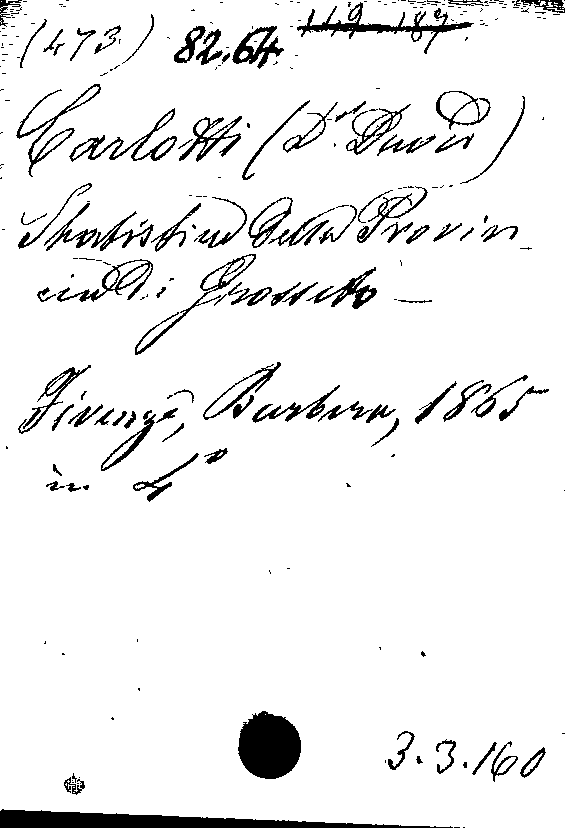 (473) 82.64. 119-187
Carlotti (D.r David)
Statistica della Provin
cia di Grosseto —
Firenze, Barbera, 1865
in 4°
3.3.160